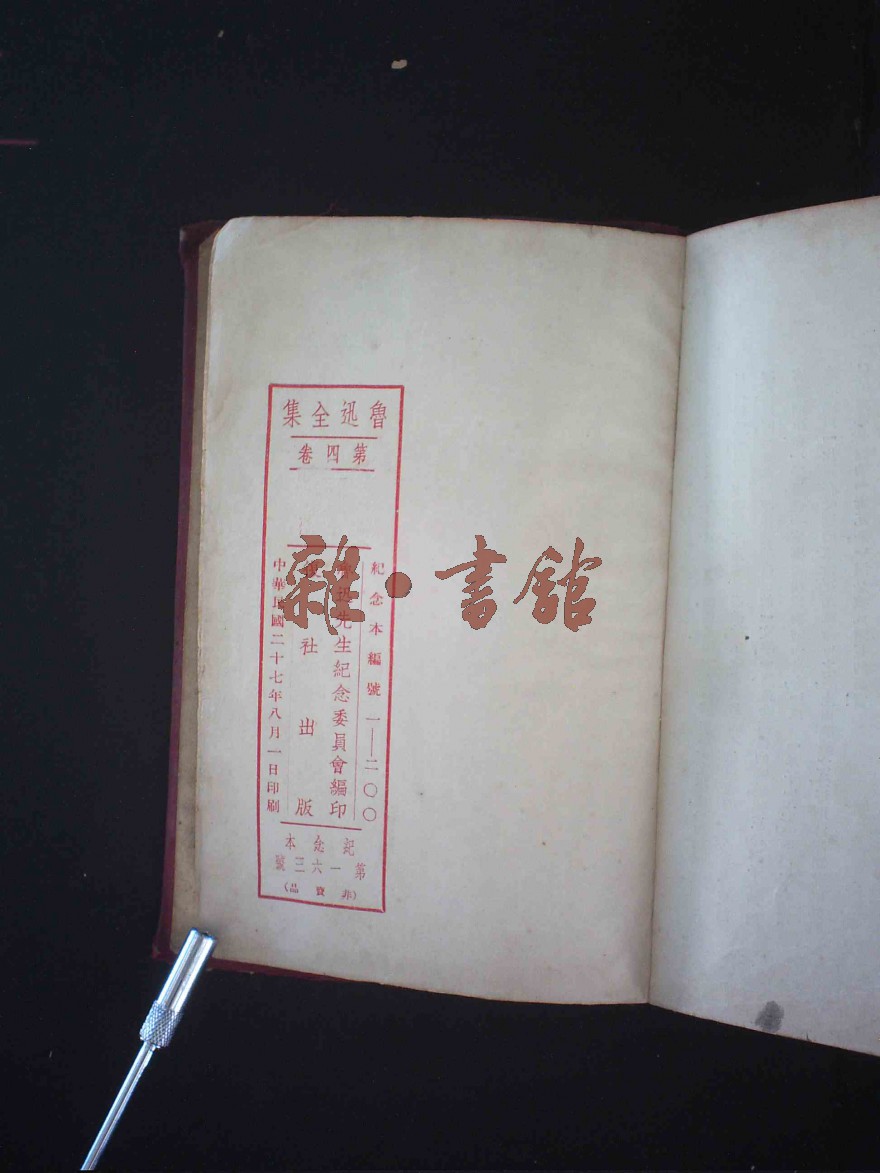 魯迅全集
第四卷
紀念本編號 一——二〇〇
魯迅先生紀念委員會編印
復社出版
中華民國二十七年八月一日印刷
紀念本
第一六三號
（非賣品）
雜·書館